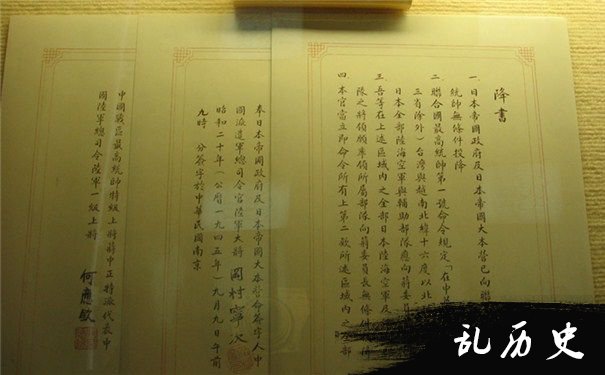 降書
一 日本帝國政府及日本帝國大本營已向聯
統帥無條件投降
二 聯合國最高統帥第一號命令規定「在中華
三省除外）台灣與越南北緯十六度以北
日本全部陸海空軍與輔助部隊應向蔣委員
三 吾等在上述區域內之全部日本陸海空軍及
隊之將領願率領所屬部隊向蔣委員長無條件
四 本官當立即命令所有上第二款所述區域內之全部
奉日本帝國政府及日本帝國大本營命簽字人中
國派遣軍總司令官陸軍大將 岡村寧次
昭和二十年（公曆一九四五年）九月九日午前
九時 分簽字於中華民國南京
中國戰區最高統帥特級上將蔣中正特派代表中
國陸軍總司令陸軍一級上將
何應欽
乱历史